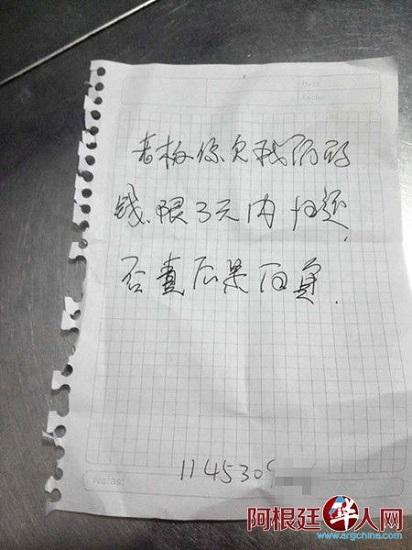 Fecha:
老板你欠我们的
钱.限3天内归还,
否责后果自负.
Notas:
1145309
阿根廷华人网
www.argchina.com